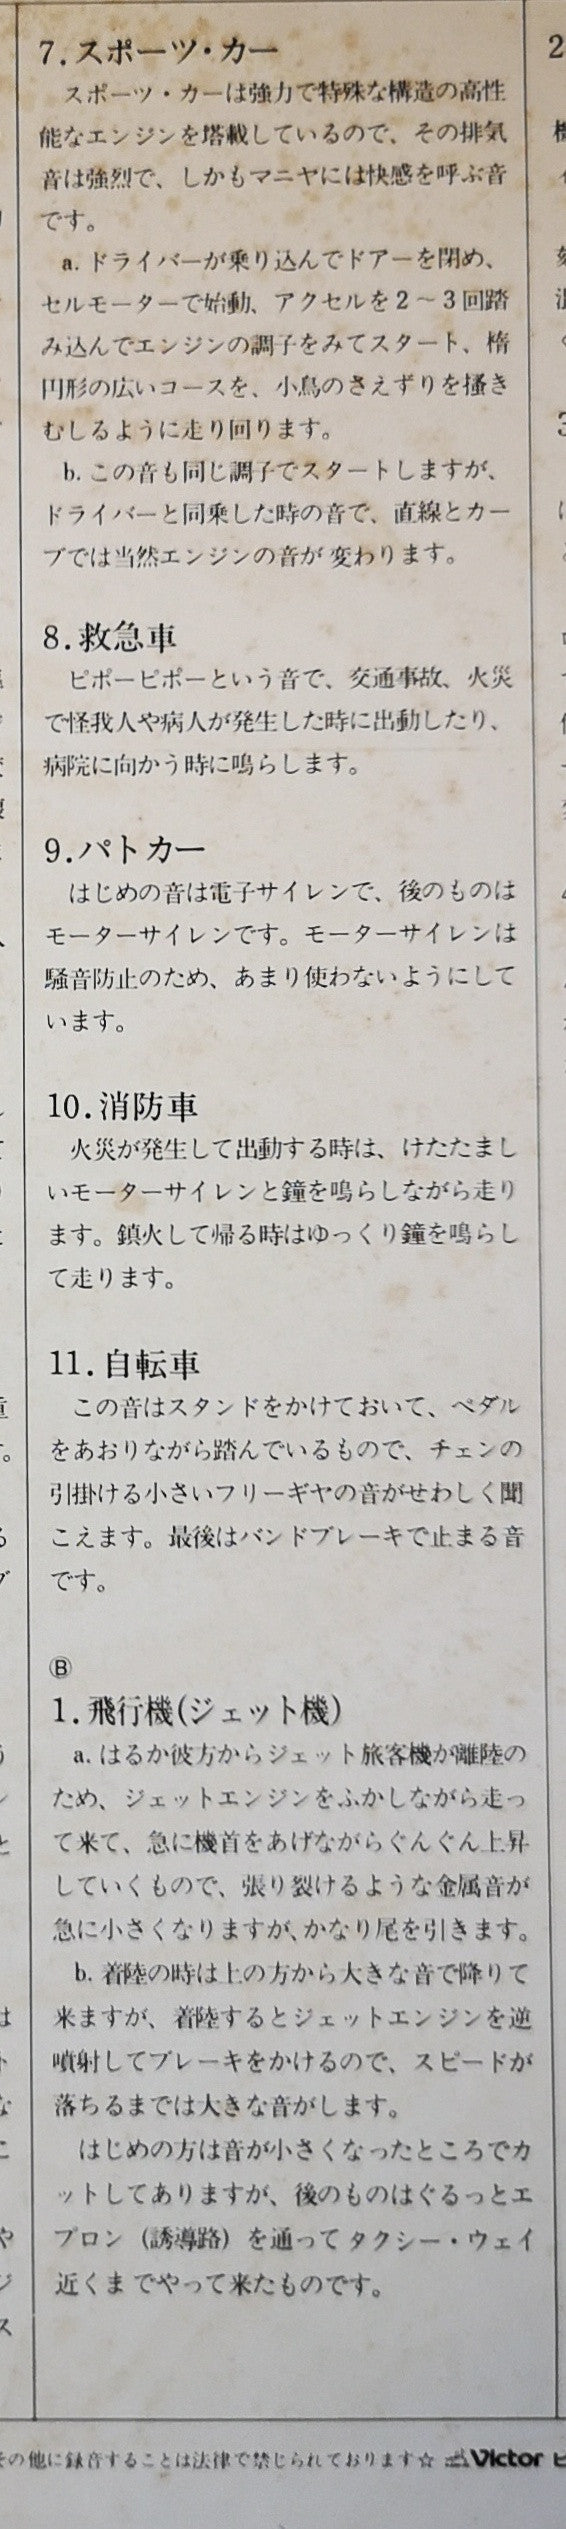 7.スポーツ・カー
スポーツ・カーは強力で特殊な構造の高性
能なエンジンを塔載しているので、その排気
音は強烈で、しかもマニヤには快感を呼ぶ音
です。
a. ドライバーが乗り込んでドアーを閉め、
セルモーターで始動、アクセルを2～3回踏
み込んでエンジンの調子をみてスタート、楕
円形の広いコースを、小鳥のさえずりを掻き
むしるように走り回ります。
b. この音も同じ調子でスタートしますが、
ドライバーと同乗した時の音で、直線とカー
ブでは当然エンジンの音が変わります。
8.救急車
ピポーピポーという音で、交通事故、火災
で怪我人や病人が発生した時に出動したり、
病院に向かう時に鳴らします。
9.パトカー
はじめの音は電子サイレンで、後のものは
モーターサイレンです。モーターサイレンは
騒音防止のため、あまり使わないようにして
います。
10.消防車
火災が発生して出動する時は、けたたまし
いモーターサイレンと鐘を鳴らしながら走り
ます。鎮火して帰る時はゆっくり鐘を鳴らし
て走ります。
11.自転車
この音はスタンドをかけておいて、ペダル
をあおりながら踏んでいるもので、チェンの
引掛ける小さいフリーギヤの音がせわしく聞
こえます。最後はバンドブレーキで止まる音
です。
Ⓑ
1.飛行機(ジェット機)
a. はるか彼方からジェット旅客機が離陸の
ため、ジェットエンジンをふかしながら走っ
て来て、急に機首をあげながらぐんぐん上昇
していくもので、張り裂けるような金属音が
急に小さくなりますが、かなり尾を引きます。
b. 着陸の時は上の方から大きな音で降りて
来ますが、着陸するとジェットエンジンを逆
噴射してブレーキをかけるので、スピードが
落ちるまでは大きな音がします。
はじめの方は音が小さくなったところでカ
ットしてありますが、後のものはぐるっとエ
プロン（誘導路）を通ってタクシー・ウェイ
近くまでやって来たものです。
その他に録音することは法律で禁じられております☆ Victor ビ